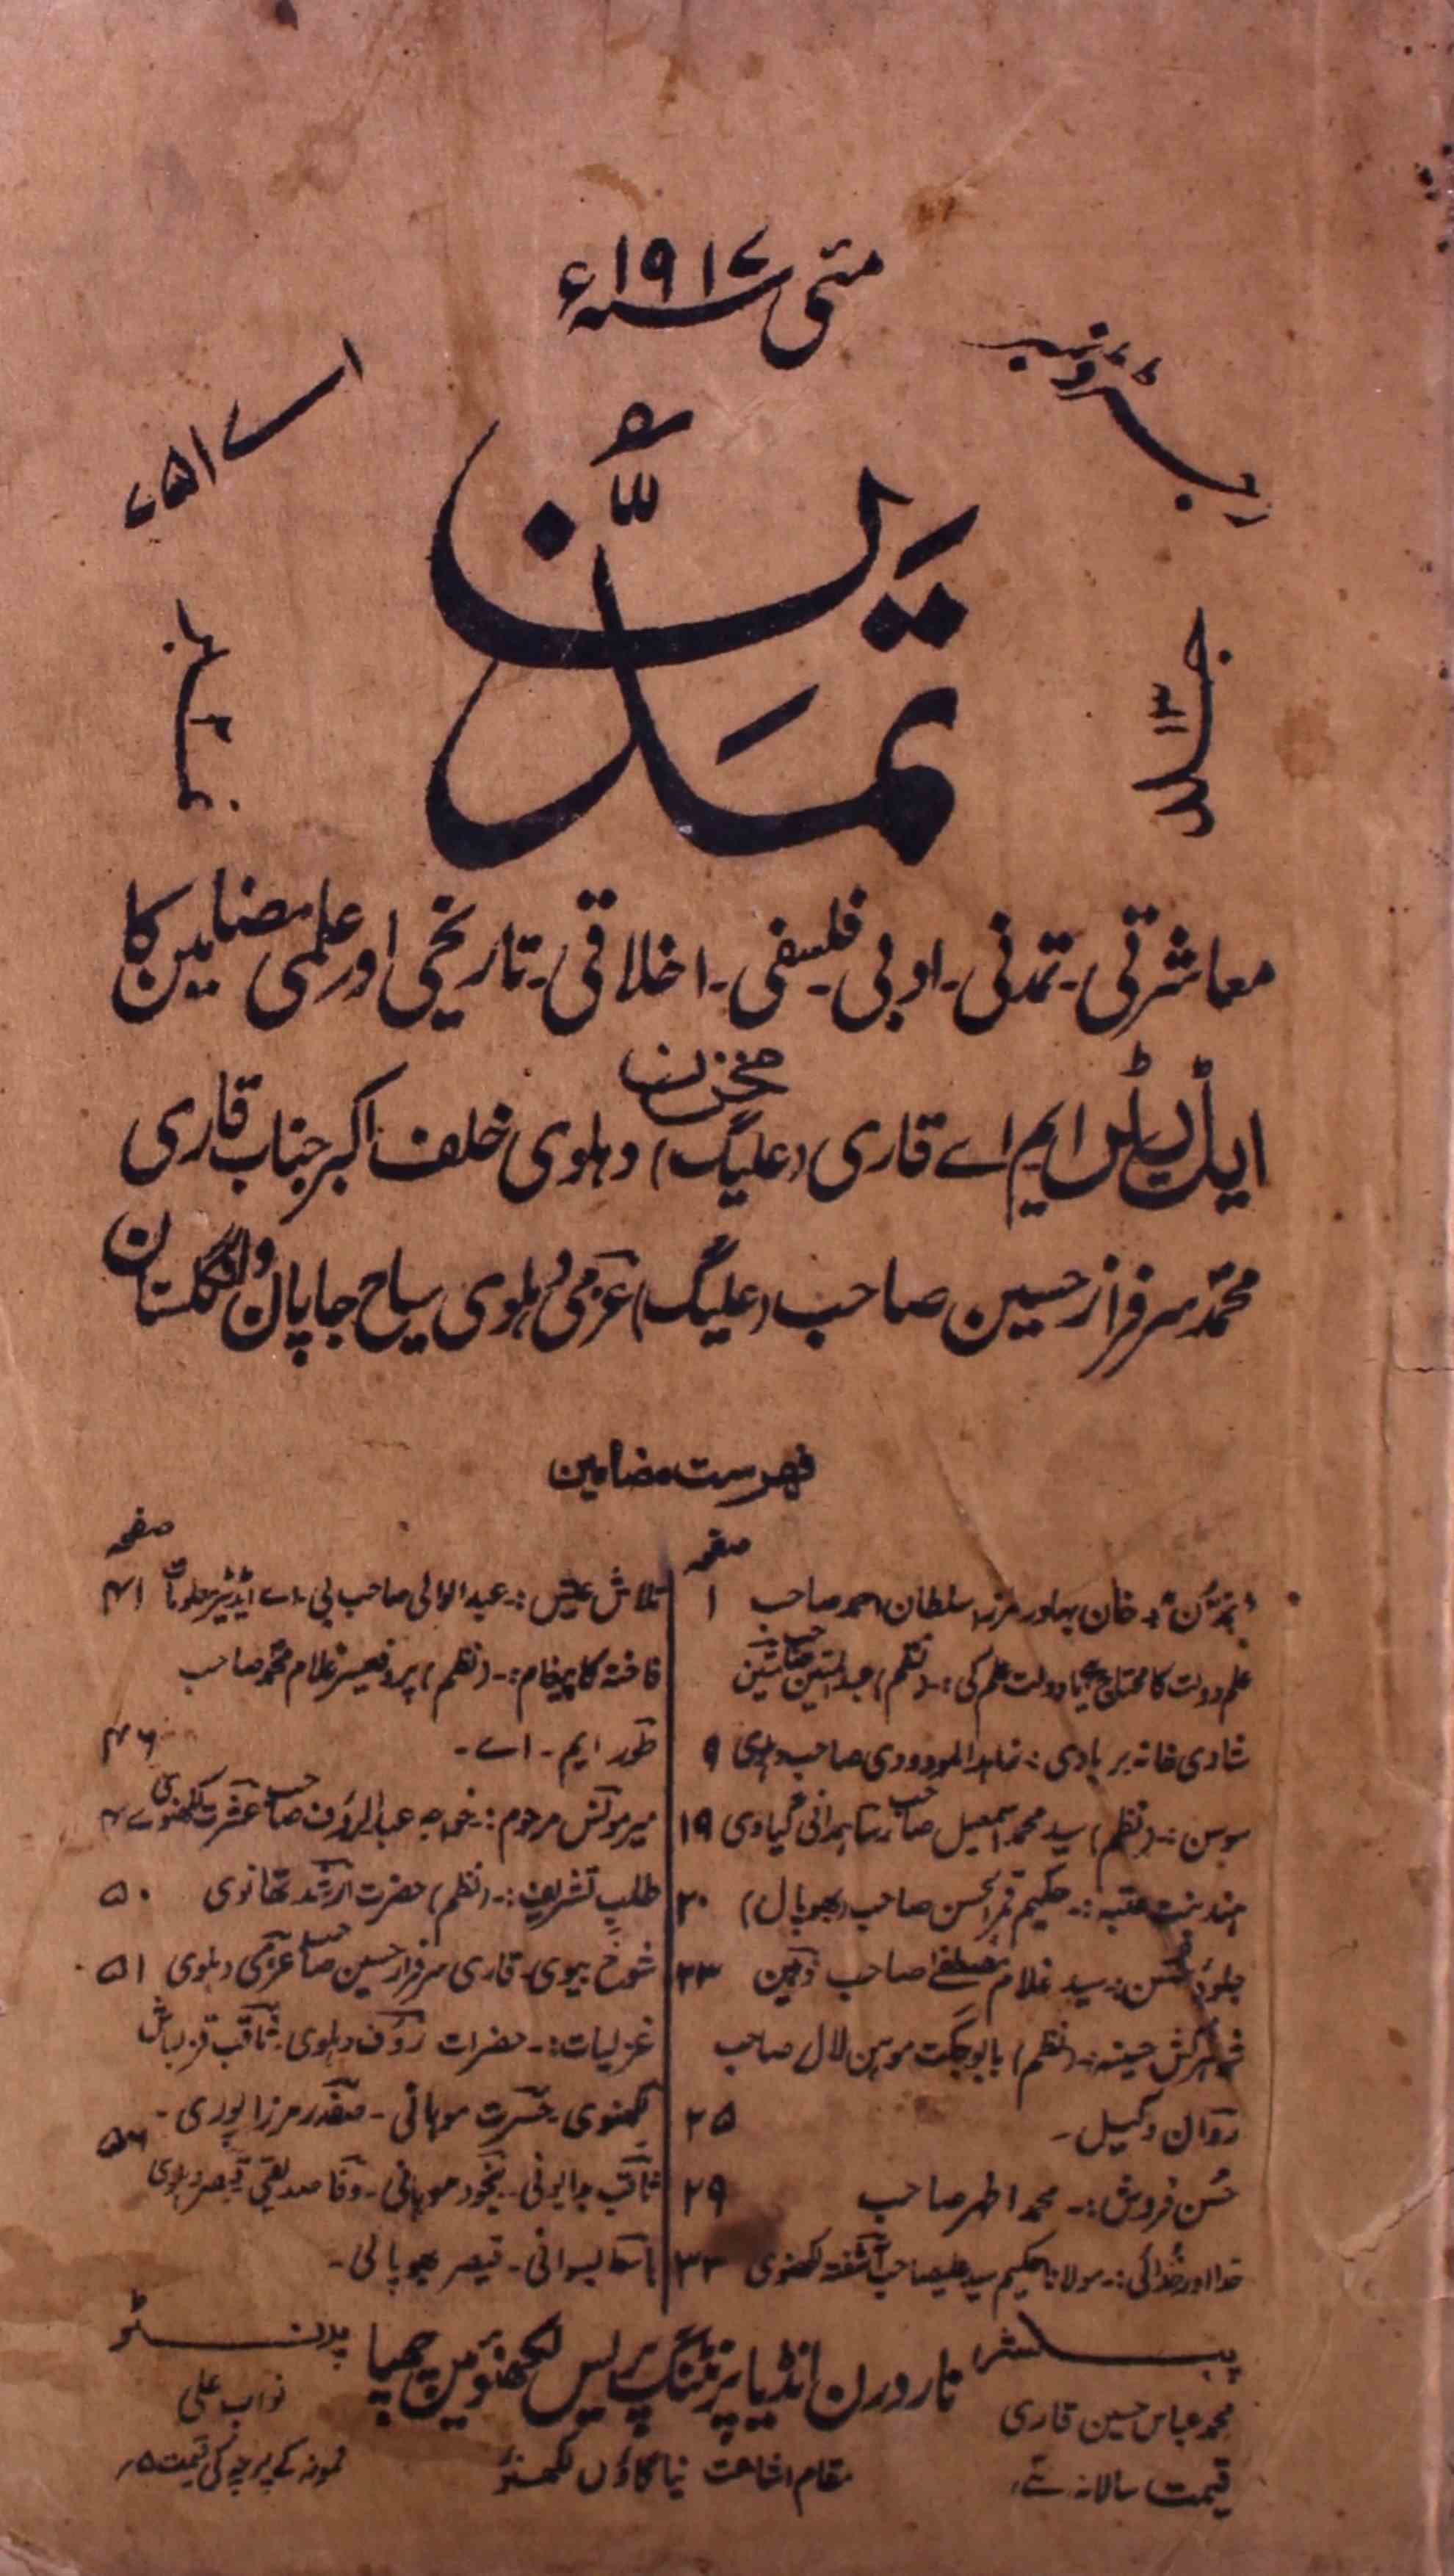 مئی سنہ ۱۹۱۷ء
رجسٹرڈ نمبر
اے ۵۱۷
تمدّن
جلد ۱۳
نمبر ۲
معاشرتی۔ تمدنی۔ ادبی۔ فلسفی۔ اخلاقی۔ تاریخی اور علمی مضامین کا
مخزن
ایم اے قاری (علیگ) دہلوی خلف اکبر جناب قاری
محمد سرفراز حسین صاحب (علیگ) عزمی دہلوی سیاح جاپان و انگلستان
فہرست مضامین
صفحہ
تمدّن:۔ خان بہادر مرزا سلطان احمد صاحب ۱
علم دولت کا محتاج ہے یا دولت علم کی:۔ (نظم) عبدالمتین صاحب متین
شادی خانہ بربادی:۔ زاہد المودودی صاحب دہلوی ۹
سوسن:۔ (نظم) سید محمد اسمعیل صاحب رسا ہمدانی گیاوی ۱۹
ہند بنت عتبہ:۔ حکیم قمر الحسن صاحب (بھوپال) ۲۰
جلوۂ حسن:۔ سید غلام مصطفےٰ صاحب ذہین ۲۳
شوہر کش حسینہ:۔ (نظم) بابو جگت موہن لال صاحب
رواں وکیل۔ ۲۵
حُسن فروش:۔ محمد اطہر صاحب ۲۹
خدا اور خدائی:۔ مولانا حکیم سید علیصاحب آشفتہ لکھنوی ۳۳
صفحہ
تلاش عیش:۔ عبدالوالی صاحب بی۔ اے ایڈیٹر معلومات ۴۱
فاختہ کا پیغام:۔ (نظم) پروفیسر غلام محمد صاحب
طور ایم۔ اے۔ ۴۶
میر مونس مرحوم:۔ خواجہ عبدالرؤف صاحب عشرت لکھنوی ۴۷
طلب تشریف:۔ (نظم) حضرت ارشد تھانوی ۵۰
شوخ بیوی۔ قاری سرفراز حسین صاحب عزمی دہلوی ۵۱
غزلیات:۔ حضرات رؤف دہلوی۔ ثاقب قزلباش
لکھنوی۔ حسرت موہانی۔ صفدر مرزا پوری۔
ثاقب بدایونی۔ بیخود موہانی۔ وفا صدیقی قیصر دہلوی ۵۶
باسط بسوانی۔ قیصر بھوپالی۔
پبلشر
محمد عباس حسین قاری
ناردرن انڈیا پرنٹنگ پریس لکھنؤ میں چھپا
پرنٹر
نواب علی
قیمت سالانہ
مقام اشاعت نیا گاؤں لکھنؤ
نمونہ کے پرچہ کی قیمت ۵